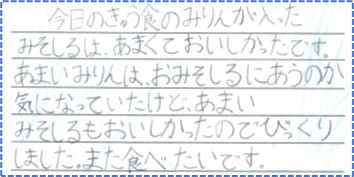 今日のきゅう食のみりんが入った
みそしるは、あまくておいしかったです。
あまいみりんは、おみそしるにあうのか
気になっていたけど、あまい
みそしるもおいしかったのでびっくり
しました。また食べたいです。